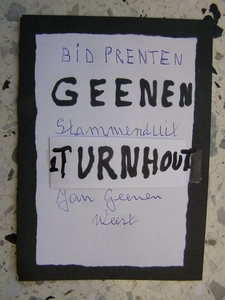 BID PRENTEN
GEENEN
Stammend uit
TURNHOUT
Jan Geenen
Weert